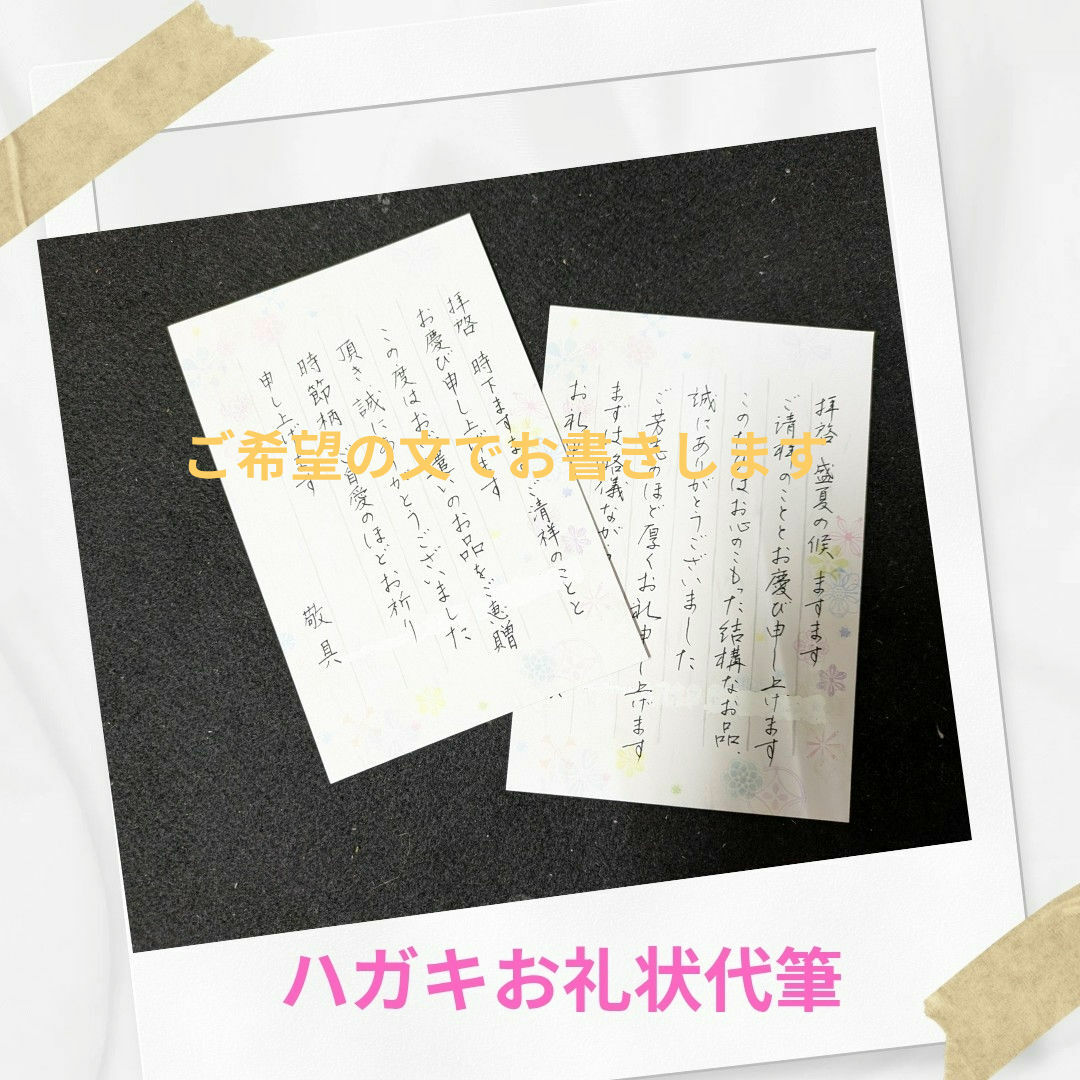 拝啓 時下ますます ご清祥のことと
お慶び申し上げます
この度はお心遣いのお品をご恵贈
頂き誠にありがとうございました
時節柄 ご自愛のほどお祈り
申し上げます
敬具
拝啓 盛夏の候、ますます
ご清祥のこととお慶び申し上げます
このたびはお心のこもった結構なお品、
誠にありがとうございました
ご芳志のほど厚くお礼申し上げます
まずは略儀ながら
お礼
ご希望の文でお書きします
ハガキお礼状代筆